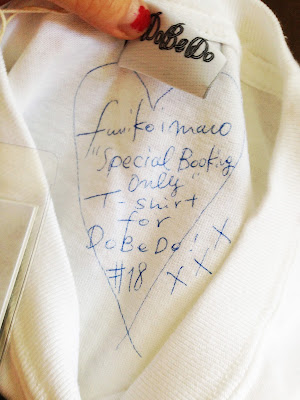 DoBeDo
fumikoimano
"Special Booking
Only"
T-shirt
for
DoBeDo! X
#18 X X